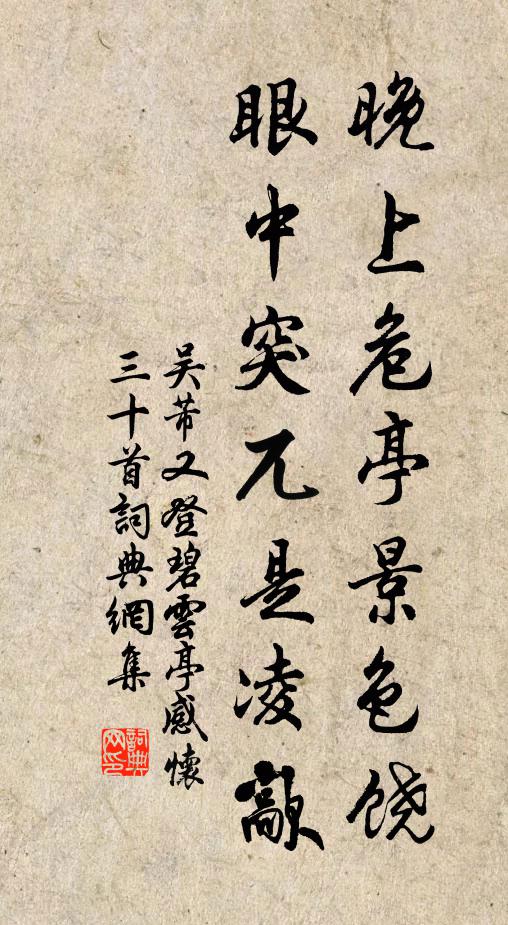 晚上危亭景色饶
眼中突兀是凌歊
吴芾又登碧雲亭感懷
三十首詞典網集
詞典
网印